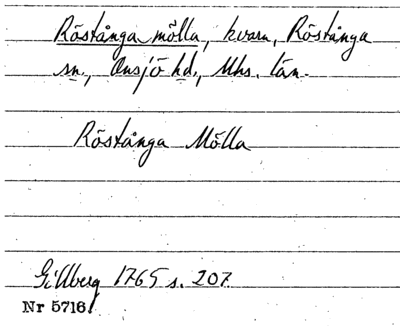 Röstånga mölla, kvarn, Röstånga
sn, Onsjö hd, Mhs. län.
Röstånga Mölla
Gillberg 1765 s. 207.
Nr 5716